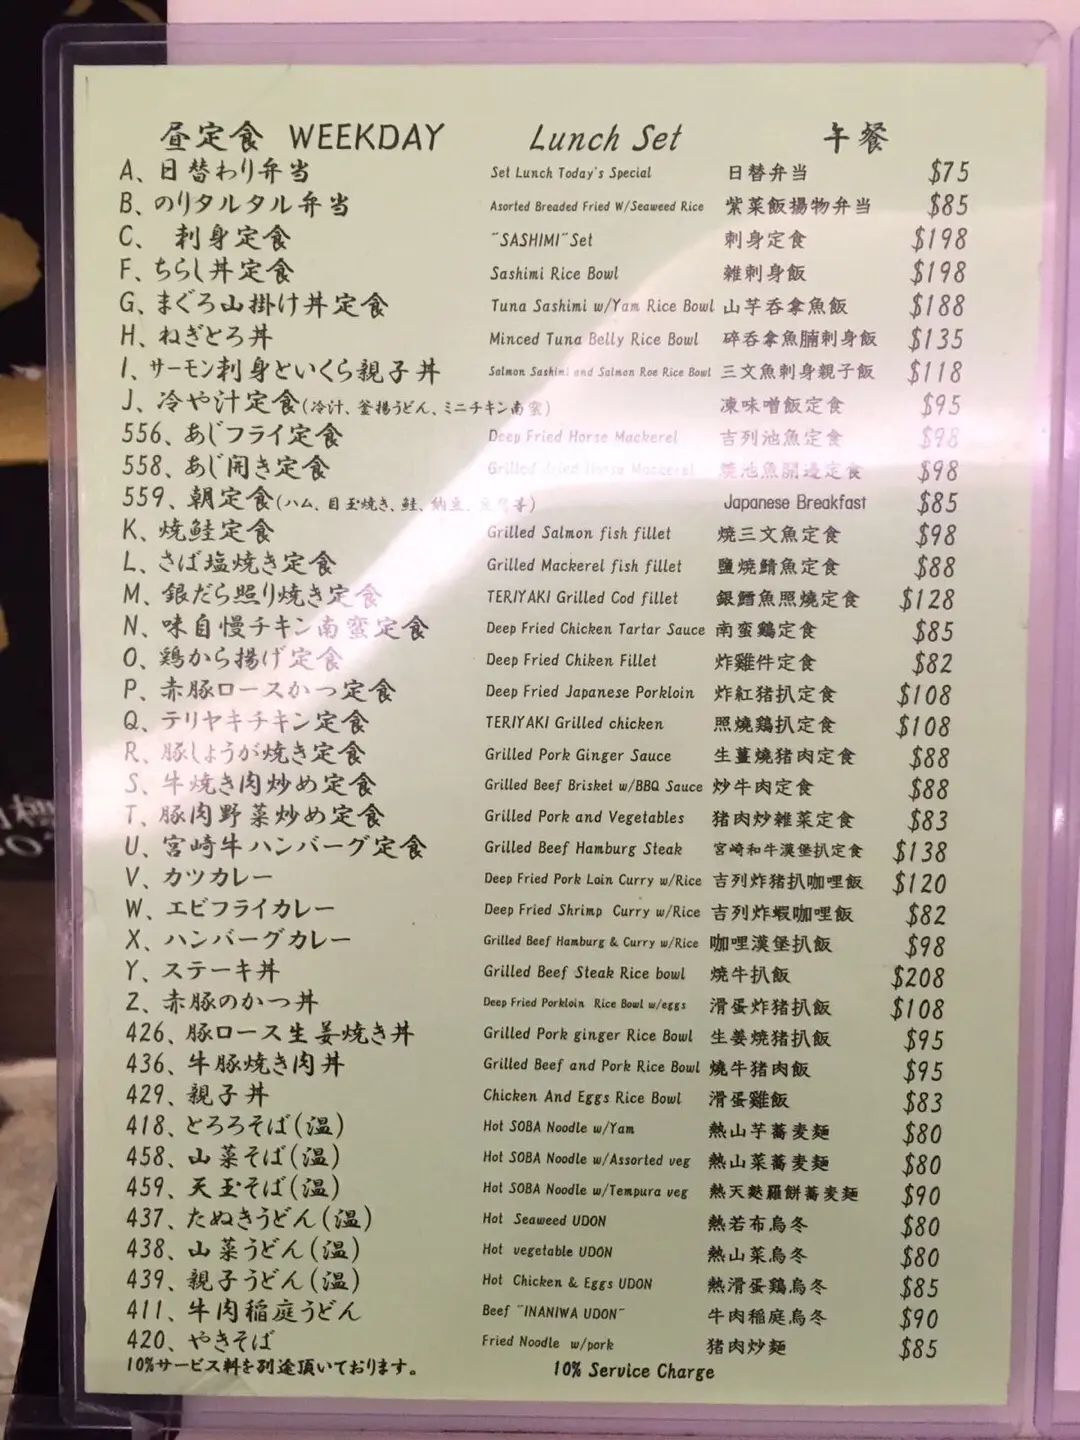 昼定食 WEEKDAY Lunch Set 午餐
A、日替わり弁当 Set Lunch Today's Special 日替弁当 $75
B、のりタルタル弁当 Asorted Breaded Fried W/Seaweed Rice 紫菜飯揚物弁当 $85
C、 刺身定食 "SASHIMI"Set 刺身定食 $198
F、ちらし丼定食 Sashimi Rice Bowl 雜刺身飯 $198
G、まぐろ山掛け丼定食 Tuna Sashimi w/Yam Rice Bowl 山芋呑拿魚飯 $188
H、ねぎとろ丼 Minced Tuna Belly Rice Bowl 碎呑拿魚腩刺身飯 $135
I、サーモン刺身といくら親子丼 Salmon Sashimi and Salmon Roe Rice Bowl 三文魚刺身親子飯 $118
J、冷や汁定食(冷汁、釜揚うどん、ミニチキン南蛮) 凍味噌飯定食 $95
556、あじフライ定食 Deep Fried Horse Mackerel 吉列池魚定食 $98
558、あじ開き定食 Grilled dried Horse Mackerel 燒池魚開邊定食 $98
559、朝定食(ハム、目玉焼き、鮭、納豆、 Japanese Breakfast $85
K、焼鮭定食 Grilled Salmon fish fillet 燒三文魚定食 $98
L、さば塩焼き定食 Grilled Mackerel fish fillet 鹽燒鯖魚定食 $88
M、銀だら照り焼き定食 TERIYAKI Grilled Cod fillet 銀鱈魚照燒定食 $128
N、味自慢チキン南蛮定食 Deep Fried Chicken Tartar Sauce 南蛮鶏定食 $85
O、鶏から揚げ定食 Deep Fried Chiken Fillet 炸雞件定食 $82
P、赤豚ロースかつ定食 Deep Fried Japanese Porkloin 炸紅猪扒定食 $108
Q、テリヤキチキン定食 TERIYAKI Grilled chicken 照燒鶏扒定食 $108
R、豚しょうが焼き定食 Grilled Pork Ginger Sauce 生薑燒猪肉定食 $88
S、牛焼き肉炒め定食 Grilled Beef Brisket w/BBQ Sauce 炒牛肉定食 $88
T、豚肉野菜炒め定食 Grilled Pork and Vegetables 猪肉炒雜菜定食 $83
U、宮崎牛ハンバーグ定食 Grilled Beef Hamburg Steak 宮崎和牛漢堡扒定食 $138
V、カツカレー Deep Fried Pork Loin Curry w/Rice 吉列炸猪扒咖哩飯 $120
W、エビフライカレー Deep Fried Shrimp Curry w/Rice 吉列炸蝦咖哩飯 $82
X、ハンバーグカレー Grilled Beef Hamburg & Curry w/Rice 咖哩漢堡扒飯 $98
Y、ステーキ丼 Grilled Beef Steak Rice bowl 燒牛扒飯 $208
Z、赤豚のかつ丼 Deep Fried Porkloin Rice Bowl w/eggs 滑蛋炸猪扒飯 $108
426、豚ロース生姜焼き丼 Grilled Pork ginger Rice Bowl 生姜燒猪扒飯 $95
436、牛豚焼き肉丼 Grilled Beef and Pork Rice Bowl 燒牛猪肉飯 $95
429、親子丼 Chicken And Eggs Rice Bowl 滑蛋雞飯 $83
418、とろろそば(温) Hot SOBA Noodle w/Yam 熱山芋蕎麦麺 $80
458、山菜そば(温) Hot SOBA Noodle w/Assorted veg 熱山菜蕎麦麺 $80
459、天玉そば(温) Hot SOBA Noodle w/Tempura veg 熱天麩羅餅蕎麦麺 $90
437、たぬきうどん(温) Hot Seaweed UDON 熱若布烏冬 $80
438、山菜うどん(温) Hot vegetable UDON 熱山菜烏冬 $80
439、親子うどん(温) Hot Chicken & Eggs UDON 熱滑蛋鶏烏冬 $85
411、牛肉稲庭うどん Beef "INANIWA UDON" 牛肉稲庭烏冬 $90
420、やきそば Fried Noodle w/pork 猪肉炒麺 $85
10%サービス料を別途頂いております。 10% Service Charge